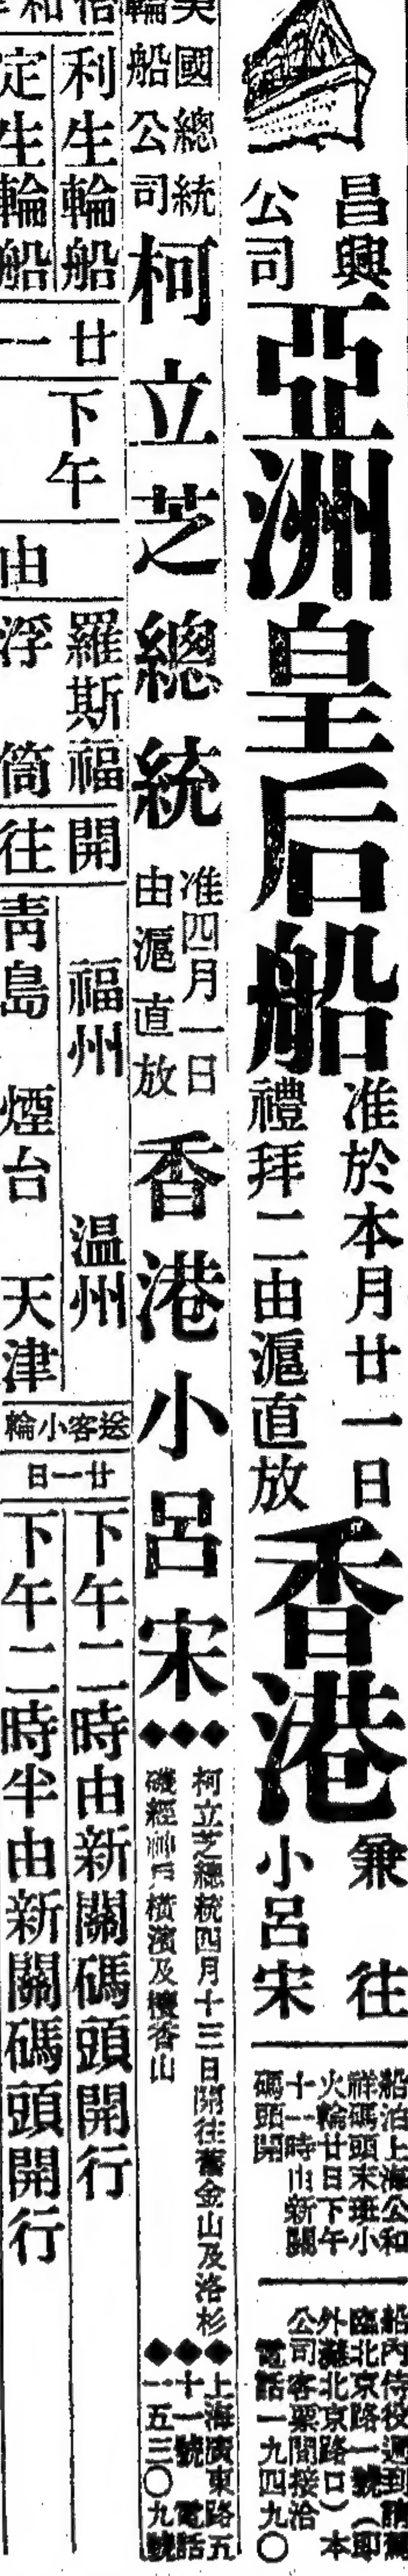 昌興
公司
亞洲皇后船
准於本月廿一日
禮拜二由滬直放
香港
兼往
小呂宋
船泊上海公和
祥碼頭末班小
火輪廿日下午
十一時由新關
碼頭開
臨北京路一號(即
外灘北京路口)本
公司客票間接洽
電話一九四九〇
美國總統
輪船公司
柯立芝總統
准四月一日
由滬直放
香港小呂宋
柯立芝總統四月十三日開往舊金山及洛杉
磯經神戶橫濱及檀香山
上海廣東路五
十一號 電話
一五三〇九號
利生輪船
定生輪船
廿一
下午
由
羅斯福
浮筒
開
往
福州 溫州
青島 煙台 天津
送客小輪
廿一日
下午二時由新關碼頭開行
下午二時半由新關碼頭開行